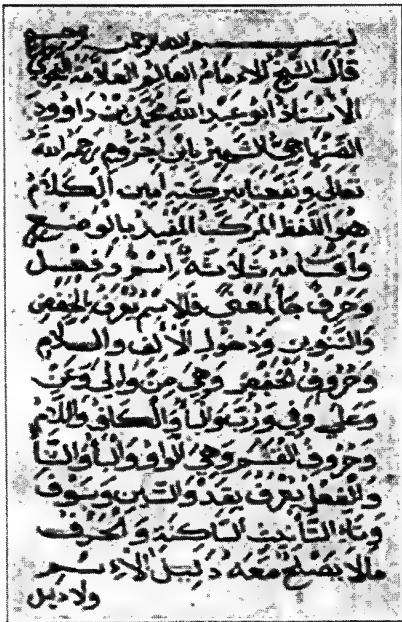 بسم الله الرحمن الرحيم
قال الشيخ الامام العالم العلامة النحوي
الاستاذ ابو عبد الله محمد بن داوود
الصنهاجي الشهير بابن اجروم رحمه الله
تعالى ونفعنا ببركته امين الكلام
هو اللفظ المركب المفيد بالوضع
واقسامه ثلاثة اسم وفعل
وحرف جاء لمعنى فالاسم يعرف بالخفض
والتنوين ودخول الالف والسلام
وحروف الخفض وهي من والى وعن
وعلى وفي ورب والباء والكاف واللام
وحروف القسم وهي الواو والباء والتاء
والفعل يعرف بقد والسين وسوف
وتاء التانيث الساكنة والحرف
مالا يصلح معه دليل الاسم
ولا دليل